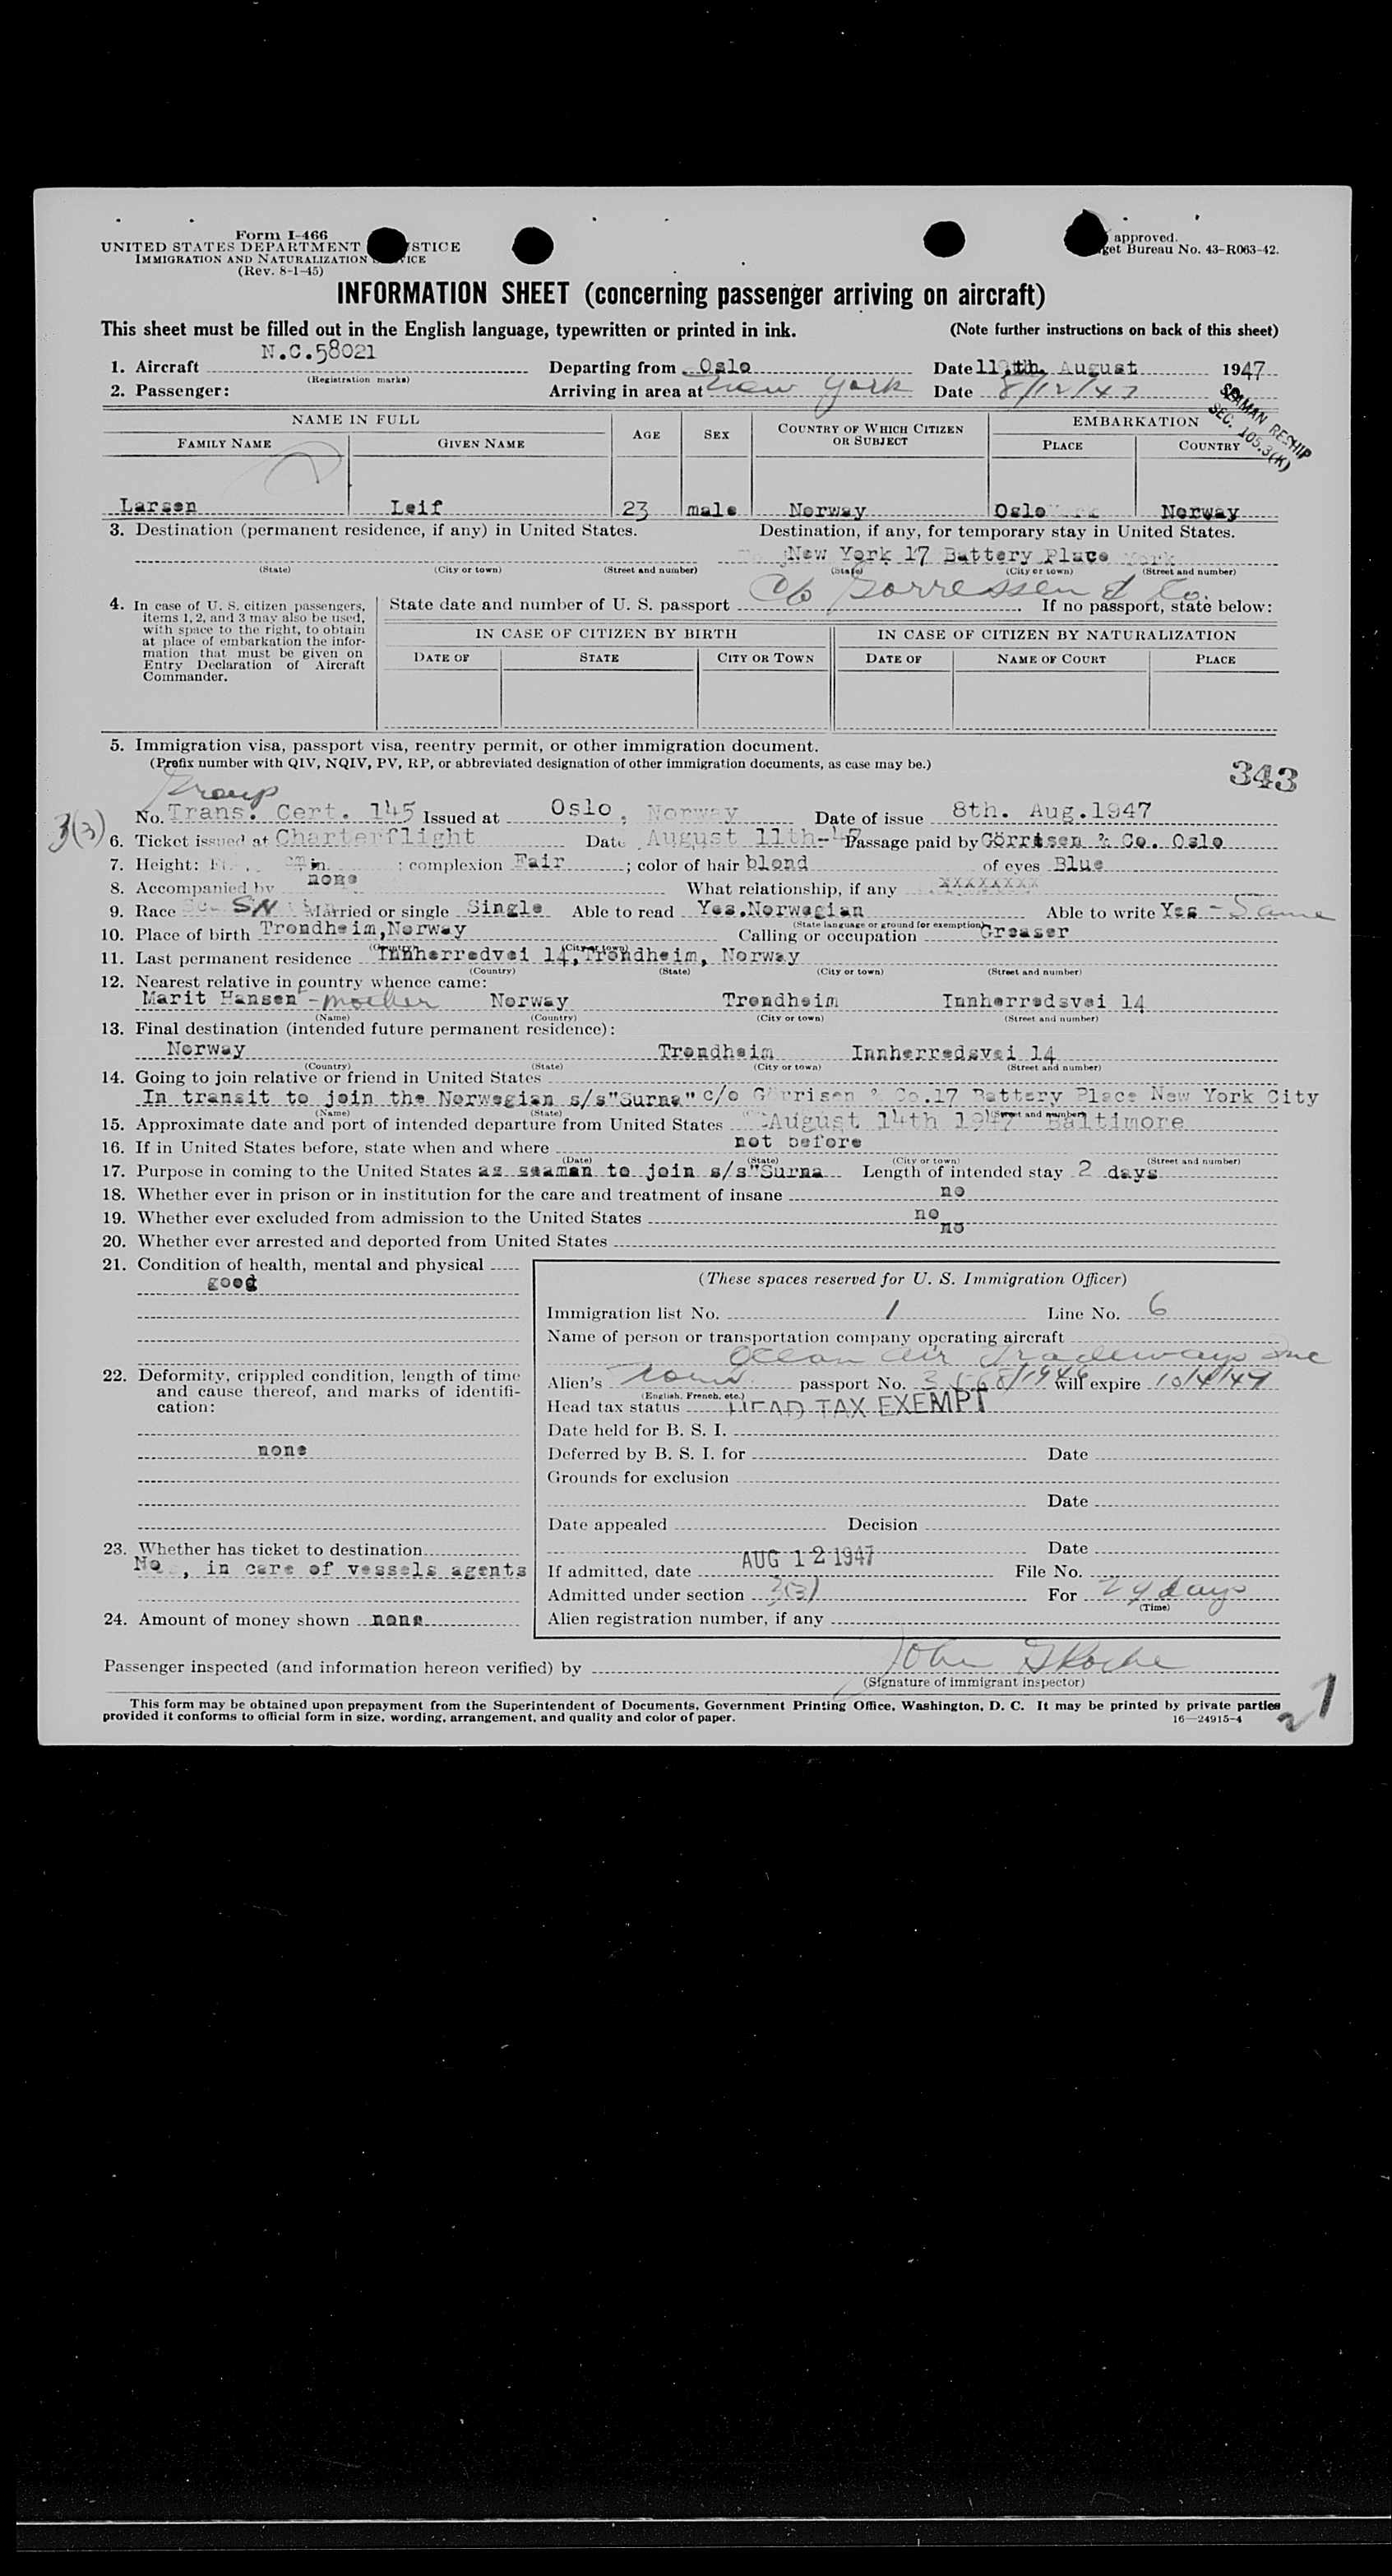 Form I-466
UNITED STATES DEPARTMENT STICE
IMMIGRATION AND NATURALIZATION SERVICE
(Rev. 8-1-45)
approved.
get Bureau No. 43-R063-42.
INFORMATION SHEET (concerning passenger arriving on aircraft)
This sheet must be filled out in the English language, typewritten or printed in ink. (Note further instructions on back of this sheet)
1. Aircraft N.C.58021 Departing from Oslo Date 11th. August 1947
(Registration marks)
2. Passenger: Arriving in area at New York Date 8/12/47
SEAMAN RESHIP
SEC. 105.3(K)
NAME IN FULL AGE SEX COUNTRY OF WHICH CITIZEN OR SUBJECT EMBARKATION
FAMILY NAME GIVEN NAME PLACE COUNTRY
Larsen Leif 23 male Norway Oslo Norway
3. Destination (permanent residence, if any) in United States. Destination, if any, for temporary stay in United States.
New York 17 Battery Place
(State) (City or town) (Street and number) (State) (City or town) (Street and number)
c/o Gorressen & Co.
4. In case of U. S. citizen passengers, items 1, 2, and 3 may also be used, with space to the right, to obtain at place of embarkation the information that must be given on Entry Declaration of Aircraft Commander.
State date and number of U. S. passport If no passport, state below:
IN CASE OF CITIZEN BY BIRTH IN CASE OF CITIZEN BY NATURALIZATION
DATE OF STATE CITY OR TOWN DATE OF NAME OF COURT PLACE
5. Immigration visa, passport visa, reentry permit, or other immigration document.
(Prefix number with QIV, NQIV, PV, RP, or abbreviated designation of other immigration documents, as case may be.)
343
Group
No. Trans. Cert. 145 Issued at Oslo, Norway Date of issue 8th. Aug.1947
3(3)
6. Ticket issued at Charterflight Date August 11th-47 Passage paid by Görrisen & Co. Oslo
7. Height: Ft. in. : complexion Fair ; color of hair blond of eyes Blue
8. Accompanied by none What relationship, if any xxxxxxxx
9. Race SN Married or single Single Able to read Yes.Norwegian Able to write Yes - Same
(State language or ground for exemption)
10. Place of birth Trondheim,Norway Calling or occupation Greaser
(Country) (City or town)
11. Last permanent residence Innherredvei 14,Trondheim, Norway
(Country) (State) (City or town) (Street and number)
12. Nearest relative in country whence came:
Marit Hansen - mother Norway Trondheim Innherredsvei 14
(Name) (Country) (City or town) (Street and number)
13. Final destination (intended future permanent residence):
Norway Trondheim Innherredsvei 14
(Country) (State) (City or town) (Street and number)
14. Going to join relative or friend in United States
In transit to join the Norwegian s/s"Surna" c/o Görrisen & Co.17 Battery Place New York City
(Name) (State) (Street and number)
15. Approximate date and port of intended departure from United States August 14th 1947 Baltimore
16. If in United States before, state when and where not before
(Date) (State) (City or town) (Street and number)
17. Purpose in coming to the United States as seaman to join s/s"Surna Length of intended stay 2 days
18. Whether ever in prison or in institution for the care and treatment of insane no
19. Whether ever excluded from admission to the United States no
20. Whether ever arrested and deported from United States no
21. Condition of health, mental and physical
good
22. Deformity, crippled condition, length of time and cause thereof, and marks of identification:
none
23. Whether has ticket to destination
No , in care of vessels agents
24. Amount of money shown none
(These spaces reserved for U. S. Immigration Officer)
Immigration list No. 1 Line No. 6
Name of person or transportation company operating aircraft
Ocean Air Tradeways Inc
Alien's passport No. will expire 10/4/47
(English, French, etc.)
Head tax status HEAD TAX EXEMPT
Date held for B. S. I.
Deferred by B. S. I. for Date
Grounds for exclusion
Date
Date appealed Decision
Date
If admitted, date AUG 12 1947 File No.
Admitted under section 3(3) For 29 days
(Time)
Alien registration number, if any
Passenger inspected (and information hereon verified) by John
(Signature of immigrant inspector)
This form may be obtained upon prepayment from the Superintendent of Documents, Government Printing Office, Washington, D. C. It may be printed by private parties
provided it conforms to official form in size, wording, arrangement, and quality and color of paper. 16—24915-4